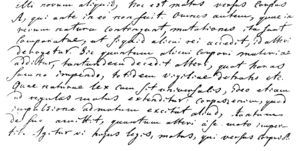 illi novum aliquid, hoc est motus versus corpus
A, qui ante in eo non fuit. Omnes autem, quae in
rerum natura contingunt, mutationes ita sunt
comparatae, ut si quid alicui rei accedit, id alteri
derogetur. Sic quantum alicui corpori materiae
additur, tantundem decedit alteri, quot horas
somno impendo, totidem vigiliae detraho etc.
Quae naturae lex cum sit universalis, ideo etiam
ad regulas motus extenditur: corpus enim, quod
impulsione ad motum excitat aliud, tantum
de suo amittit, quantum alteri a se moto imper-
tit. Igitur vi huius legis, motus, qui versus corpus